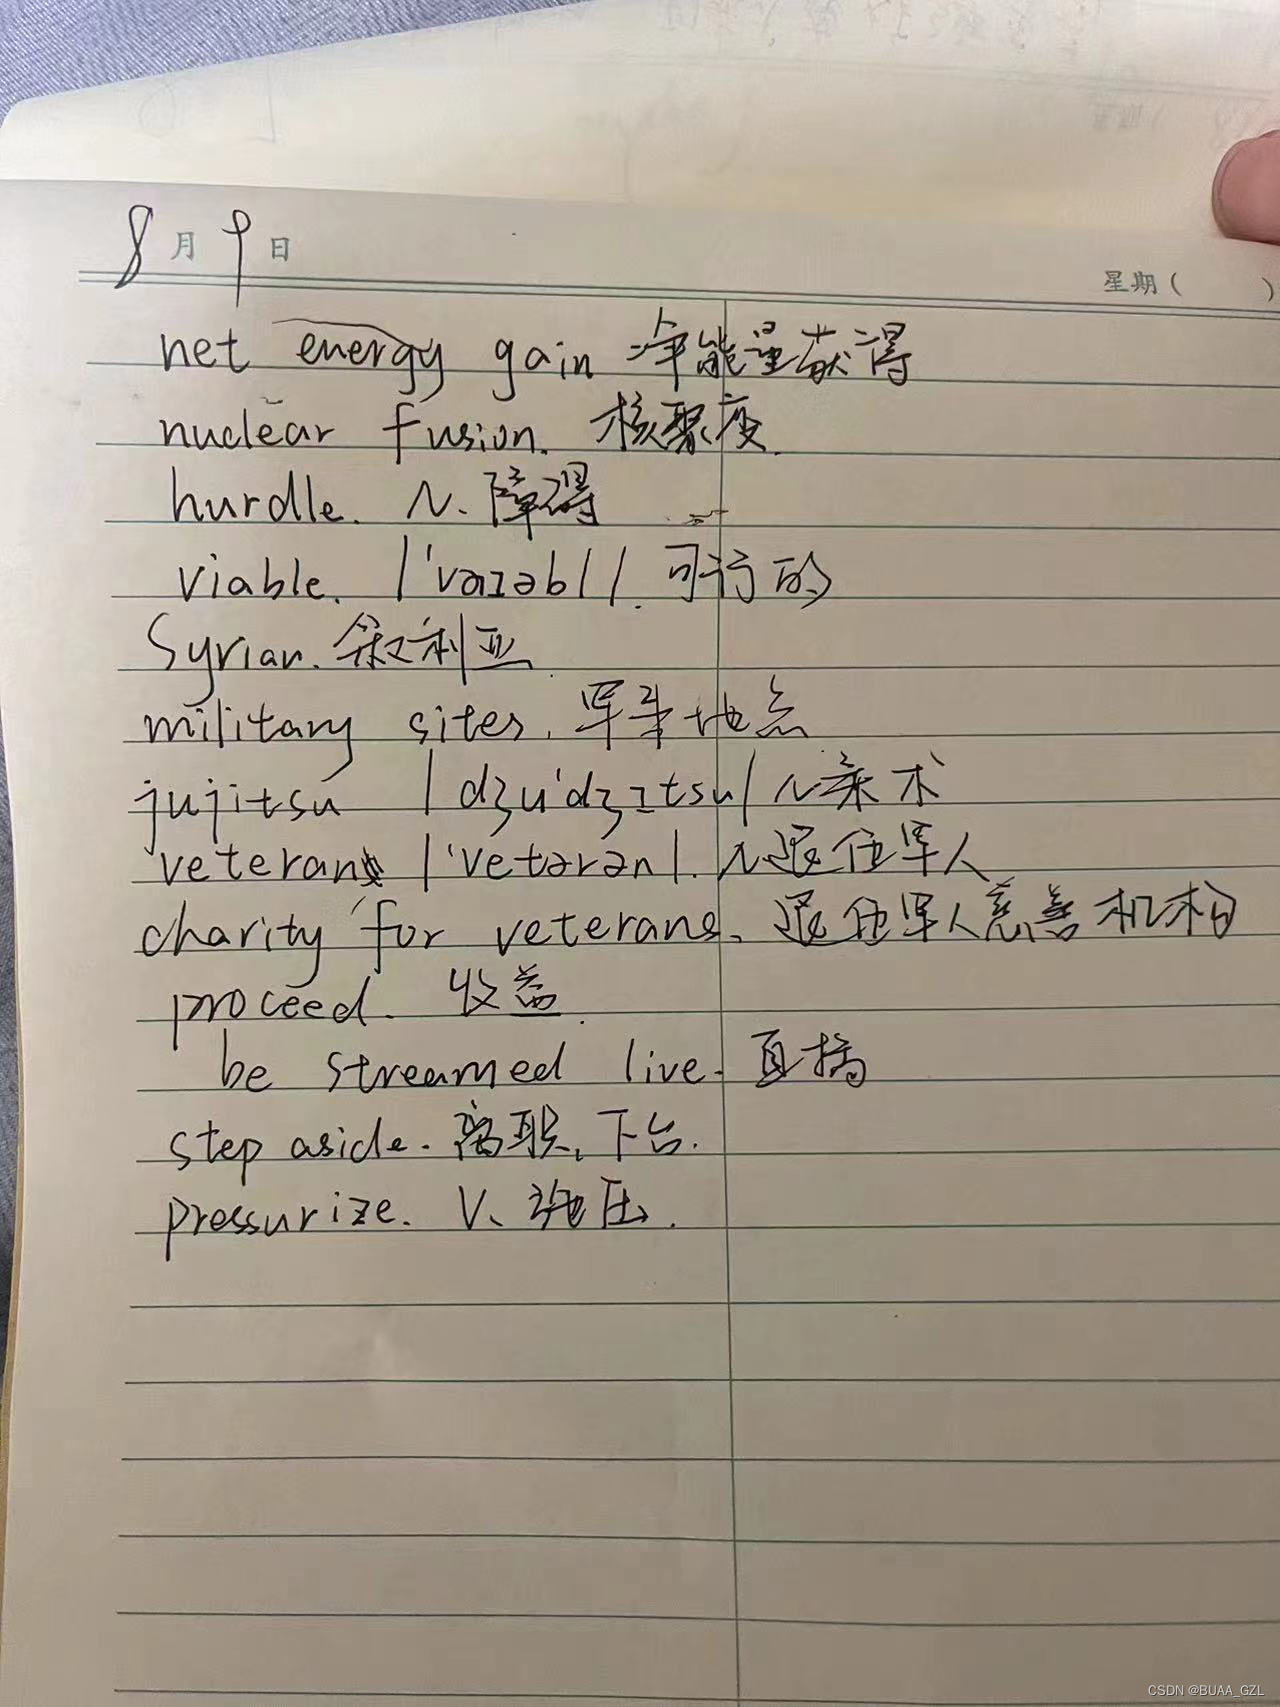 8月9日
星期( )
net energy gain 净能量获得
nuclear fusion. 核聚变.
hurdle. n. 障碍
viable. /'vaɪəbl/. 可行的
Syrian. 叙利亚.
military sites. 军事地点
jujitsu /dʒu'dʒɪtsu/ n柔术
veteran /'vetərən/. n退伍军人
charity for veterans. 退伍军人慈善机构
proceed. 收益.
be streamed live. 直播
step aside. 离职, 下台.
pressurize. V、施压.
CSDN @BUAA_GZL